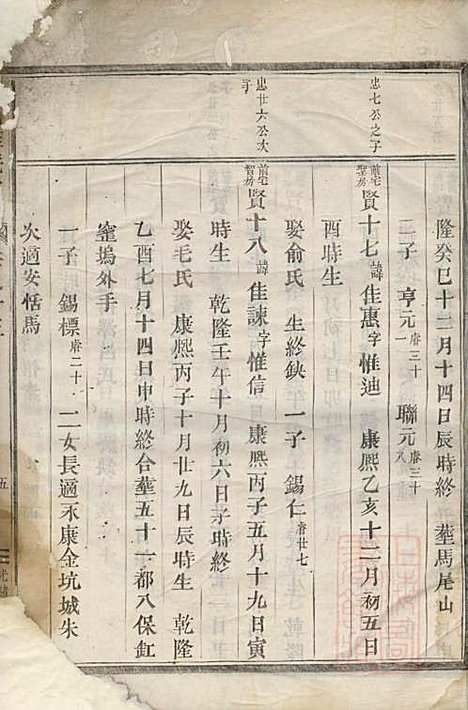 隆癸巳十二月十四日卯時終 葬馬尾山
二子 亨元唐三十一 聯元唐三十八
忠七公之子
前宅聖房
賢十七諱佳惠字惟迪 康熙乙亥十二月初五日
酉時生
娶俞氏 生終缺 一子錫仁睿廿七
忠廿六公次子
前宅智房
賢十八諱佳諫字惟信 康熙丙子五月十九日寅
時生 乾隆壬午十月初六日子時終
娶毛氏 康熙丙子十月廿九日辰時生 乾隆
乙酉七月十四日申時終合葬五十一都八保缸
窰塢外手
一子 錫標睿二十 二女長適永康金坑城朱
次適安恬馬
五